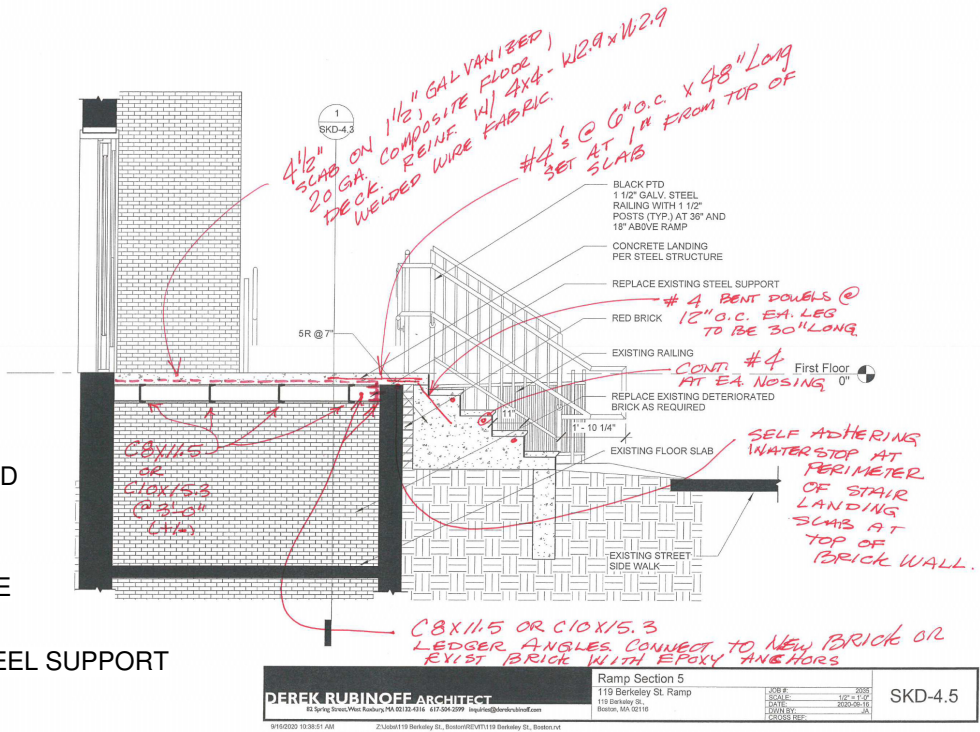 4 1/2"
SLAB ON 1 1/2", GALVANIZED,
20 GA. COMPOSITE FLOOR
DECK. REINF. W/ 4x4 - W2.9 x W2.9
WELDED WIRE FABRIC.
1
SKD-4.3
#4's @ 6" O.C. x 48" Long
SET AT 1" FROM TOP OF
SLAB
BLACK PTD
1 1/2" GALV. STEEL
RAILING WITH 1 1/2"
POSTS (TYP.) AT 36" AND
18" ABOVE RAMP
CONCRETE LANDING
PER STEEL STRUCTURE
REPLACE EXISTING STEEL SUPPORT
# 4 BENT DOWELS @
12" O.C. EA. LEG
TO BE 30" LONG
RED BRICK
5R @ 7"
EXISTING RAILING
CONT. #4
AT EA. NOSING
First Floor
0"
REPLACE EXISTING DETERIORATED
BRICK AS REQUIRED
11"
1' - 10 1/4"
EXISTING FLOOR SLAB
C8X11.5
OR
C10X15.3
@ 3'-0"
(+/-)
SELF ADHERING
WATERSTOP AT
PERIMETER
OF STAIR
LANDING
SLAB AT
TOP OF
BRICK WALL.
D
EXISTING STREET
SIDE WALK
E
EEL SUPPORT
C8X11.5 OR C10X15.3
LEDGER ANGLES. CONNECT TO NEW BRICK OR
EXIST BRICK WITH EPOXY ANCHORS
DEREK RUBINOFF ARCHITECT
82 Spring Street, West Roxbury, MA 02132-4316 617-504-2599 inquiries@derekrubinoff.com
Ramp Section 5
119 Berkeley St. Ramp
119 Berkeley St.,
Boston, MA 02116
JOB #: 2035
SCALE: 1/2" = 1'-0"
DATE: 2020-09-16
DWN BY: JA
CROSS REF:
SKD-4.5
9/16/2020 10:38:51 AM
Z:\Jobs\119 Berkeley St., Boston\REVIT\119 Berkeley St., Boston.rvt